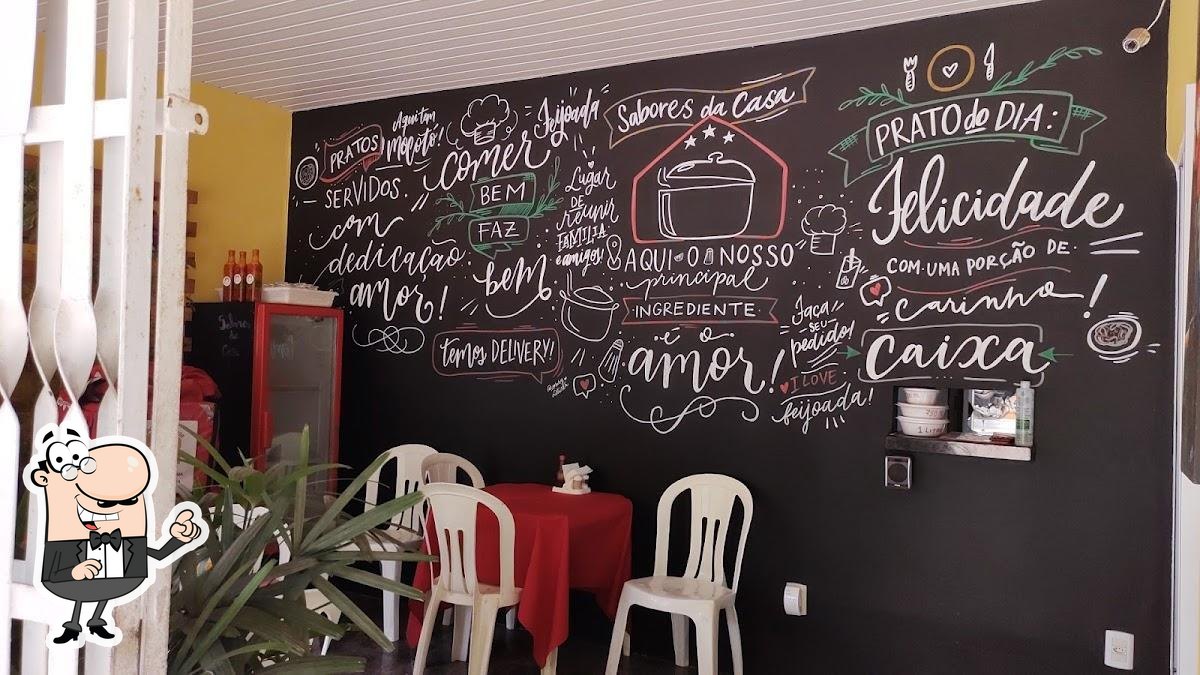 PRATOS
SERVIDOS
com
dedicação
amor!
Aqui tem
Mocotó!
Comer
BEM
FAZ
bem
Feijoada
Lugar
DE
reunir
FAMÍLIA
e amigos!
temos DELIVERY!
Sabores da Casa
AQUI O NOSSO
principal
INGREDIENTE
é o
amor!
Faça
SEU
pedido!
I LOVE
feijoada!
PRATO do DIA:
Felicidade
COM UMA PORÇÃO DE
carinho!
Caixa
Sabores
da
Casa
1 Litro